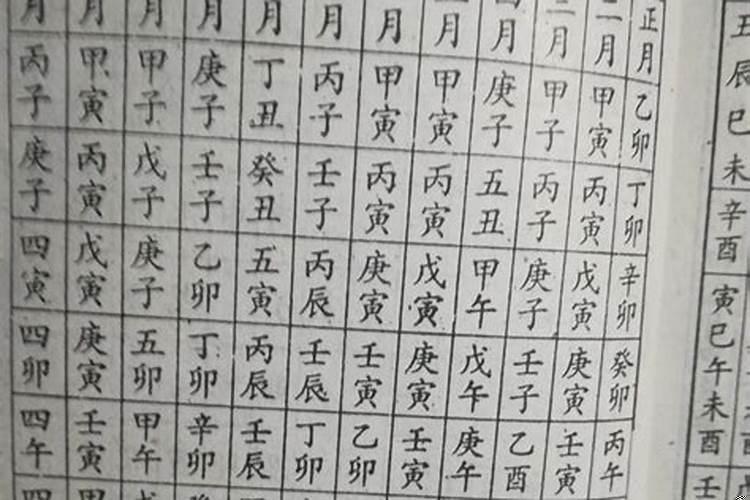 丑辰巳未 辛酉 寅巳午未酉 壬
正月 乙卯 丁卯 辛卯 癸卯 丙午
二月 甲寅 丙寅 戊寅 庚寅 壬寅
月 甲子 丙子 庚子 壬子 乙酉
月 庚子 五丑 甲午 戊午 庚午
月 甲寅 丙寅 戊寅 庚寅 壬寅
月 甲寅 丙寅 庚寅 壬寅 乙卯
月 丙子 壬子 丙辰 壬辰 丁卯
月 丁丑 癸丑 五寅 丙辰 壬辰
月 庚子 壬子 乙卯 丁卯 辛卯
月 甲子 戊子 庚子 五卯 甲午
月 甲寅 丙寅 戊寅 庚寅 壬寅
月 丙子 庚子 四寅 四卯 四午 四